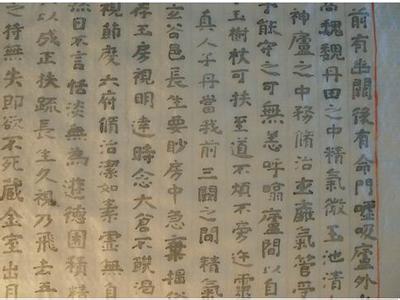 前有幽關後有命門噓吸廬外
高巍巍丹田之中精氣微玉池清
神廬之中務脩治玄膺氣管受
子能守之可無恙呼噏廬間以自
玉樹杖可扶至道不煩不旁迕靈
真人子丹當我前三關之間精氣
玄谷邑長生要眇房中急棄捐
存玉房視明達時念大倉不飢渴
視節度六府脩治潔如素虛無自
無日不言恬淡無為遊德園積精
以成正扶疏長生久視乃飛去五
之待無失即欲不死藏金室出月